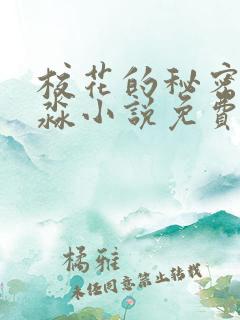 校花的秘密
淼小说免費
橘雅
未经同意禁止转载